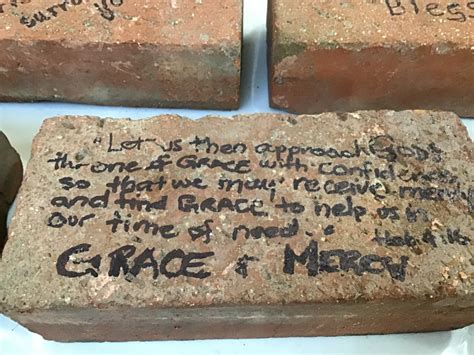 surro yo
Bless
"Let us then approach God's
throne of GRACE with confidence
so that we may receive mercy
and find GRACE to help us in
our time of need."
Heb 4:16
GRACE & MERCY